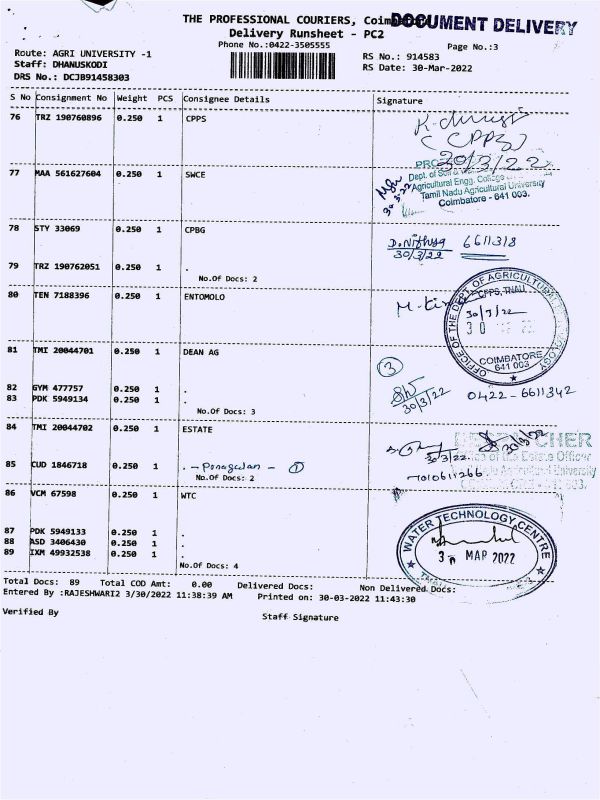 THE PROFESSIONAL COURIERS,
DOCUMENT DELIVERY
Delivery Runsheet - PC2
Phone No.:0422-3505555
Page No.:3
Route: AGRI UNIVERSITY -1
RS No.: 914583
Staff: DHANUSKODI
RS Date: 30-Mar-2022
DRS No.: DCJB91458303
S No Consignment No Weight PCS Consignee Details Signature
76 TRZ 190760896 0.250 1 CPPS
(CPPS)
30/3/22
77 MAA 561627604 0.250 1 SWCE
Dept. of Soil
Agricultural Engg. College
Tamil Nadu Agricultural University
Coimbatore - 641 003.
78 STY 33069 0.250 1 CPBG
D. Nithya 6611318
30/3/22
79 TRZ 190762051 0.250 1 .
No.Of Docs: 2
80 TEN 7188396 0.250 1 ENTOMOLO
OFFICE OF THE DEPT OF AGRICULTURAL
CPPS, TNAU
30/3/22
COIMBATORE
641 003
81 TMI 20044701 0.250 1 DEAN AG
3
82 GYM 477757 0.250 1 .
83 PDK 5949134 0.250 1 .
30/3/22
0422-6611342
No.Of Docs: 3
84 TMI 20044702 0.250 1 ESTATE
30/3/22
30/3/22
Estate Officer
7010611266
85 CUD 1846718 0.250 1 .
No.Of Docs: 2
86 VCM 67598 0.250 1 WTC
WATER TECHNOLOGY CENTRE
MAR 2022
87 PDK 5949133 0.250 1 .
88 ASD 3406430 0.250 1 .
89 IXM 49932538 0.250 1 .
No.Of Docs: 4
Total Docs: 89 Total COD Amt: 0.00 Delivered Docs: Non Delivered Docs:
Entered By :RAJESHWARI2 3/30/2022 11:38:39 AM Printed on: 30-03-2022 11:43:30
Verified By
Staff Signature